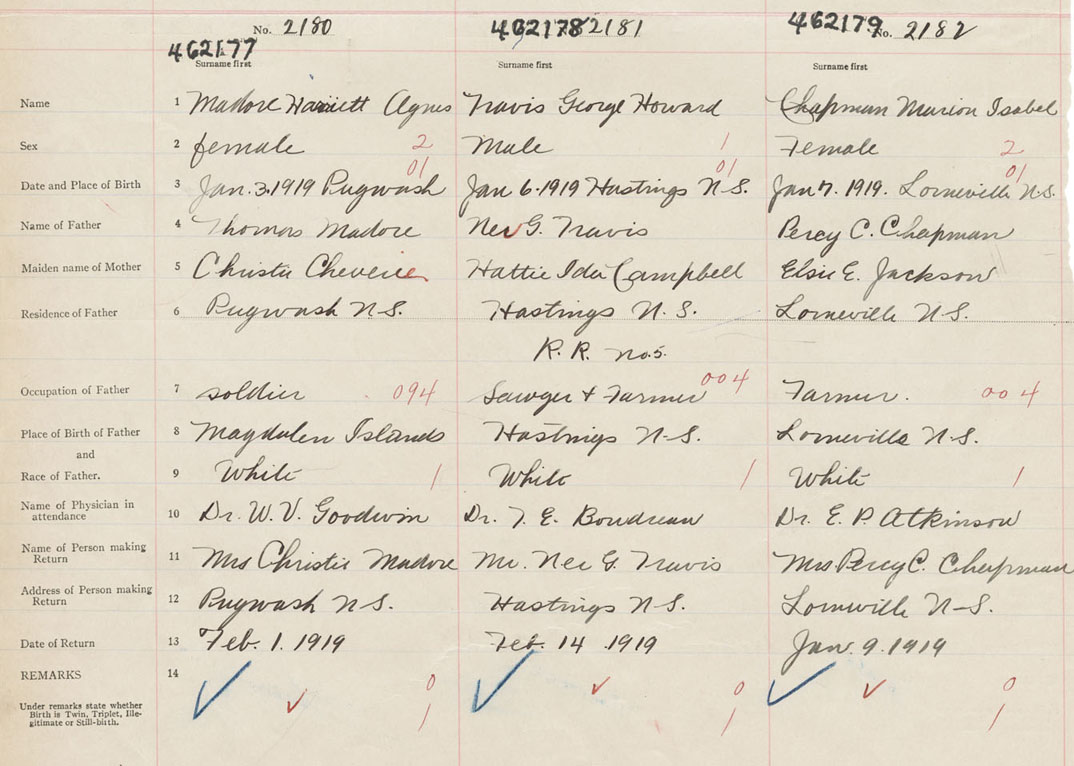 No. 2180 462178 2181 462179 No. 2182
462177
Surname first Surname first Surname first
Name 1 Madore Harriett Agnes Travis George Howard Chapman Marion Isabel
Sex 2 female 2 Male 1 Female 2
01 01 01
Date and Place of Birth 3 Jan. 3. 1919 Pugwash Jan 6. 1919 Hastings N.S. Jan 7. 1919. Lorneville N.S.
Name of Father 4 Thomas Madore G. Travis Percy C. Chapman
Maiden name of Mother 5 Christie Hattie Ida Campbell Elsie E. Jackson
Residence of Father 6 Pugwash N.S. Hastings N.S. Lorneville N.S.
R.R. No.5.
Occupation of Father 7 soldier 094 Sawyer + Farmer 004 Farmer. 004
Place of Birth of Father 8 Magdalen Islands Hastings N.S. Lorneville N.S.
and
Race of Father. 9 White 1 White 1 White 1
Name of Physician in
attendance 10 Dr. W. V. Goodwin Dr. E. Boudreau Dr. E. P. Atkinson
Name of Person making
Return 11 Mrs Christie Madore Mr. G. Travis Mrs Percy C. Chapman
Address of Person making
Return 12 Pugwash N.S. Hastings N.S. Lorneville N.S.
Date of Return 13 Feb. 1. 1919 Feb. 14 1919 Jan. 9. 1919
REMARKS 14
0 0 0
Under remarks state whether
Birth is Twin, Triplet, Ille-
gitimate or Still-birth. 1 1 1